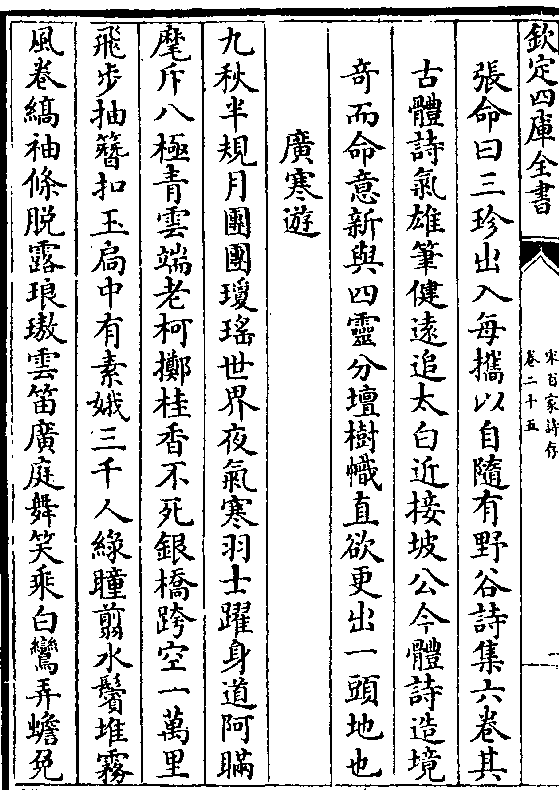 欽定四庫全書
宋百家詩存
卷二十五
張命曰三珍出入每攜以自隨有野谷詩集六卷其
古體詩氣雄筆健遠追太白近接坡公今體詩造境
奇而命意新與四靈分壇樹幟直欲更出一頭地也
廣寒遊
九秋半規月團團瓊瑤世界夜氣寒羽士躍身道阿瞞
麾斥八極青雲端老柯擲桂香不死銀橋跨空一萬里
飛步抽簪扣玉扃中有素娥三千人綠瞳翦水鬢堆霧
風卷縞袖條脫露琅璈雲笛廣庭舞笑乘白鸞弄蟾兔